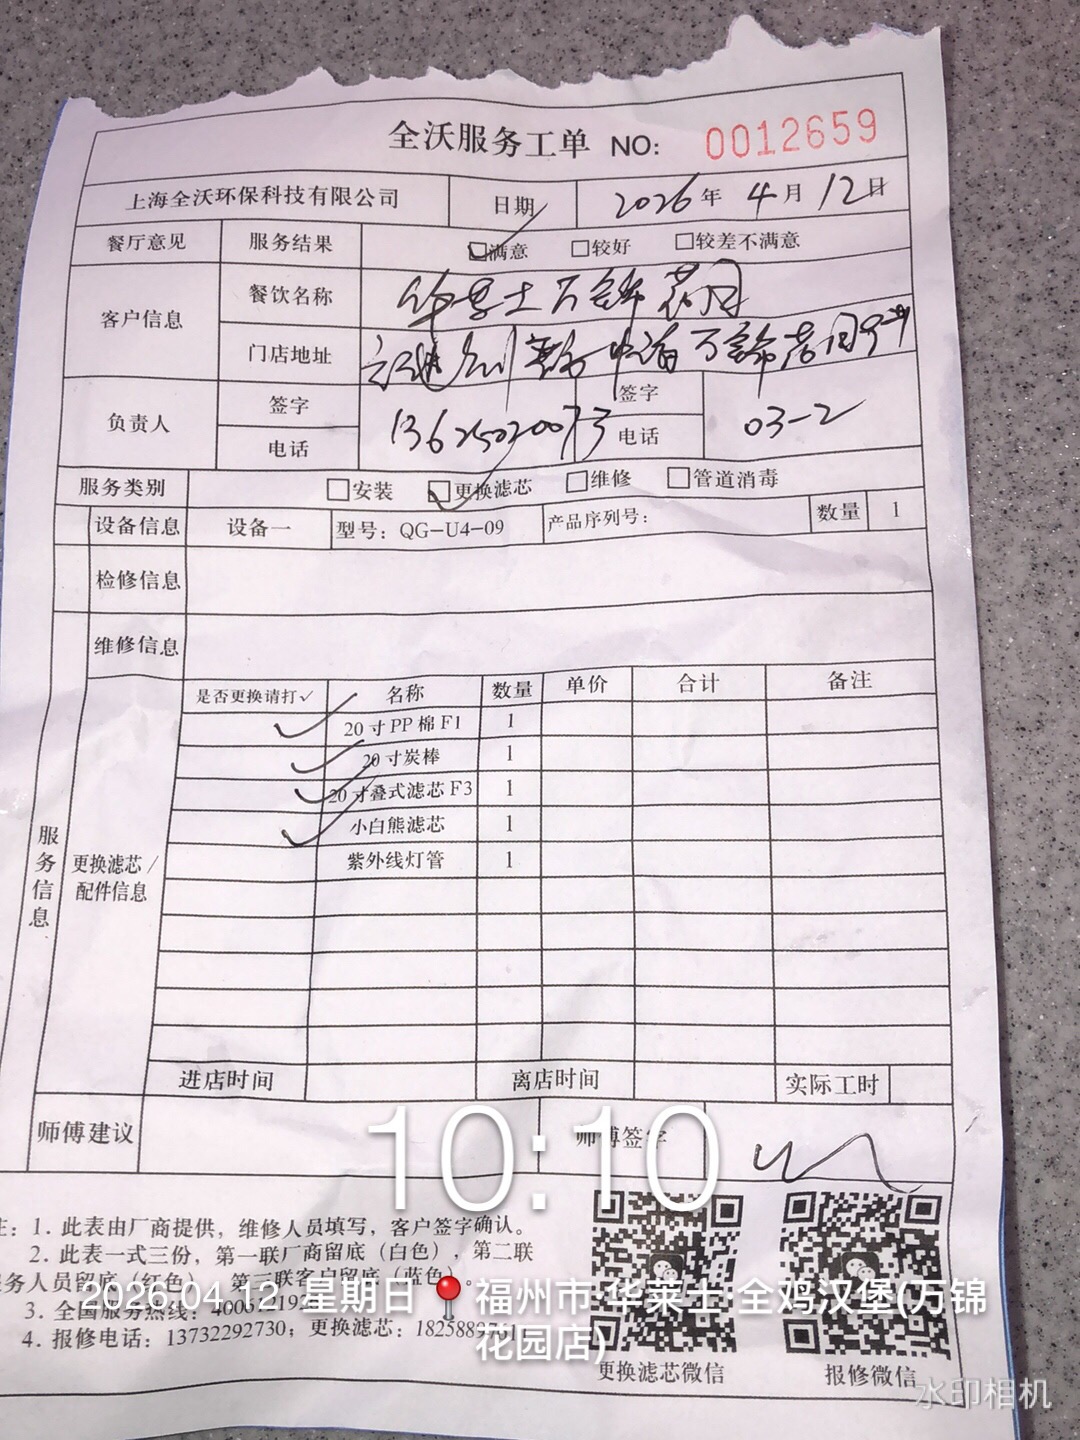 全沃服务工单 NO: 0012659
上海全沃环保科技有限公司 日期 2026年 4月 12日
餐厅意见 服务结果 ☑满意 □较好 □较差不满意
客户信息 餐饮名称 华莱士万锦花园
门店地址 万锦花园
负责人 签字 签字
电话 13625020073 电话 03-2
服务类别 □安装 ☑更换滤芯 □维修 □管道消毒
设备信息 设备一 型号: QG-U4-09 产品序列号: 数量 1
检修信息
维修信息
服务信息
更换滤芯/配件信息
是否更换请打✓ 名称 数量 单价 合计 备注
✓ 20寸PP棉F1 1
✓ 20寸炭棒 1
✓ 20寸叠式滤芯F3 1
✓ 小白熊滤芯 1
紫外线灯管 1
进店时间 离店时间 实际工时
师傅建议 师傅签字
10:10
注: 1. 此表由厂商提供，维修人员填写，客户签字确认。
2. 此表一式三份，第一联厂商留底（白色），第二联
服务人员留底（红色），第三联客户留底（蓝色）。
3. 全国服务热线:
4. 报修电话: 13732292730; 更换滤芯:
更换滤芯微信 报修微信
2026.04.12 星期日 福州市·华莱士·全鸡汉堡(万锦
花园店)
水印相机